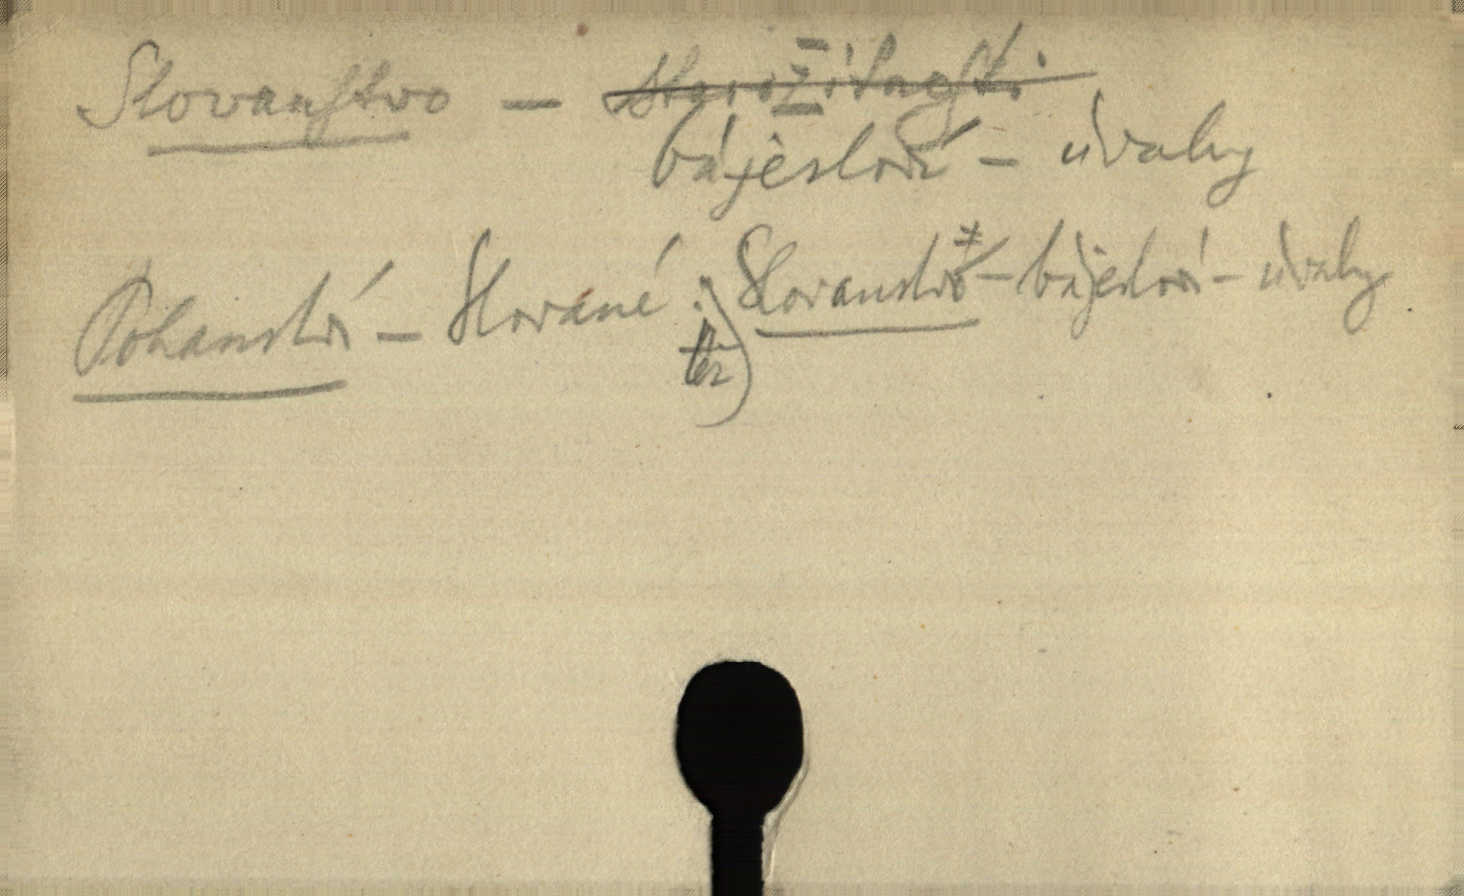 Slovanstvo — starožitnosti.
bájesloví — úvahy
Pohanství — Slované : Slovanstvo — bájesloví — úvahy
též